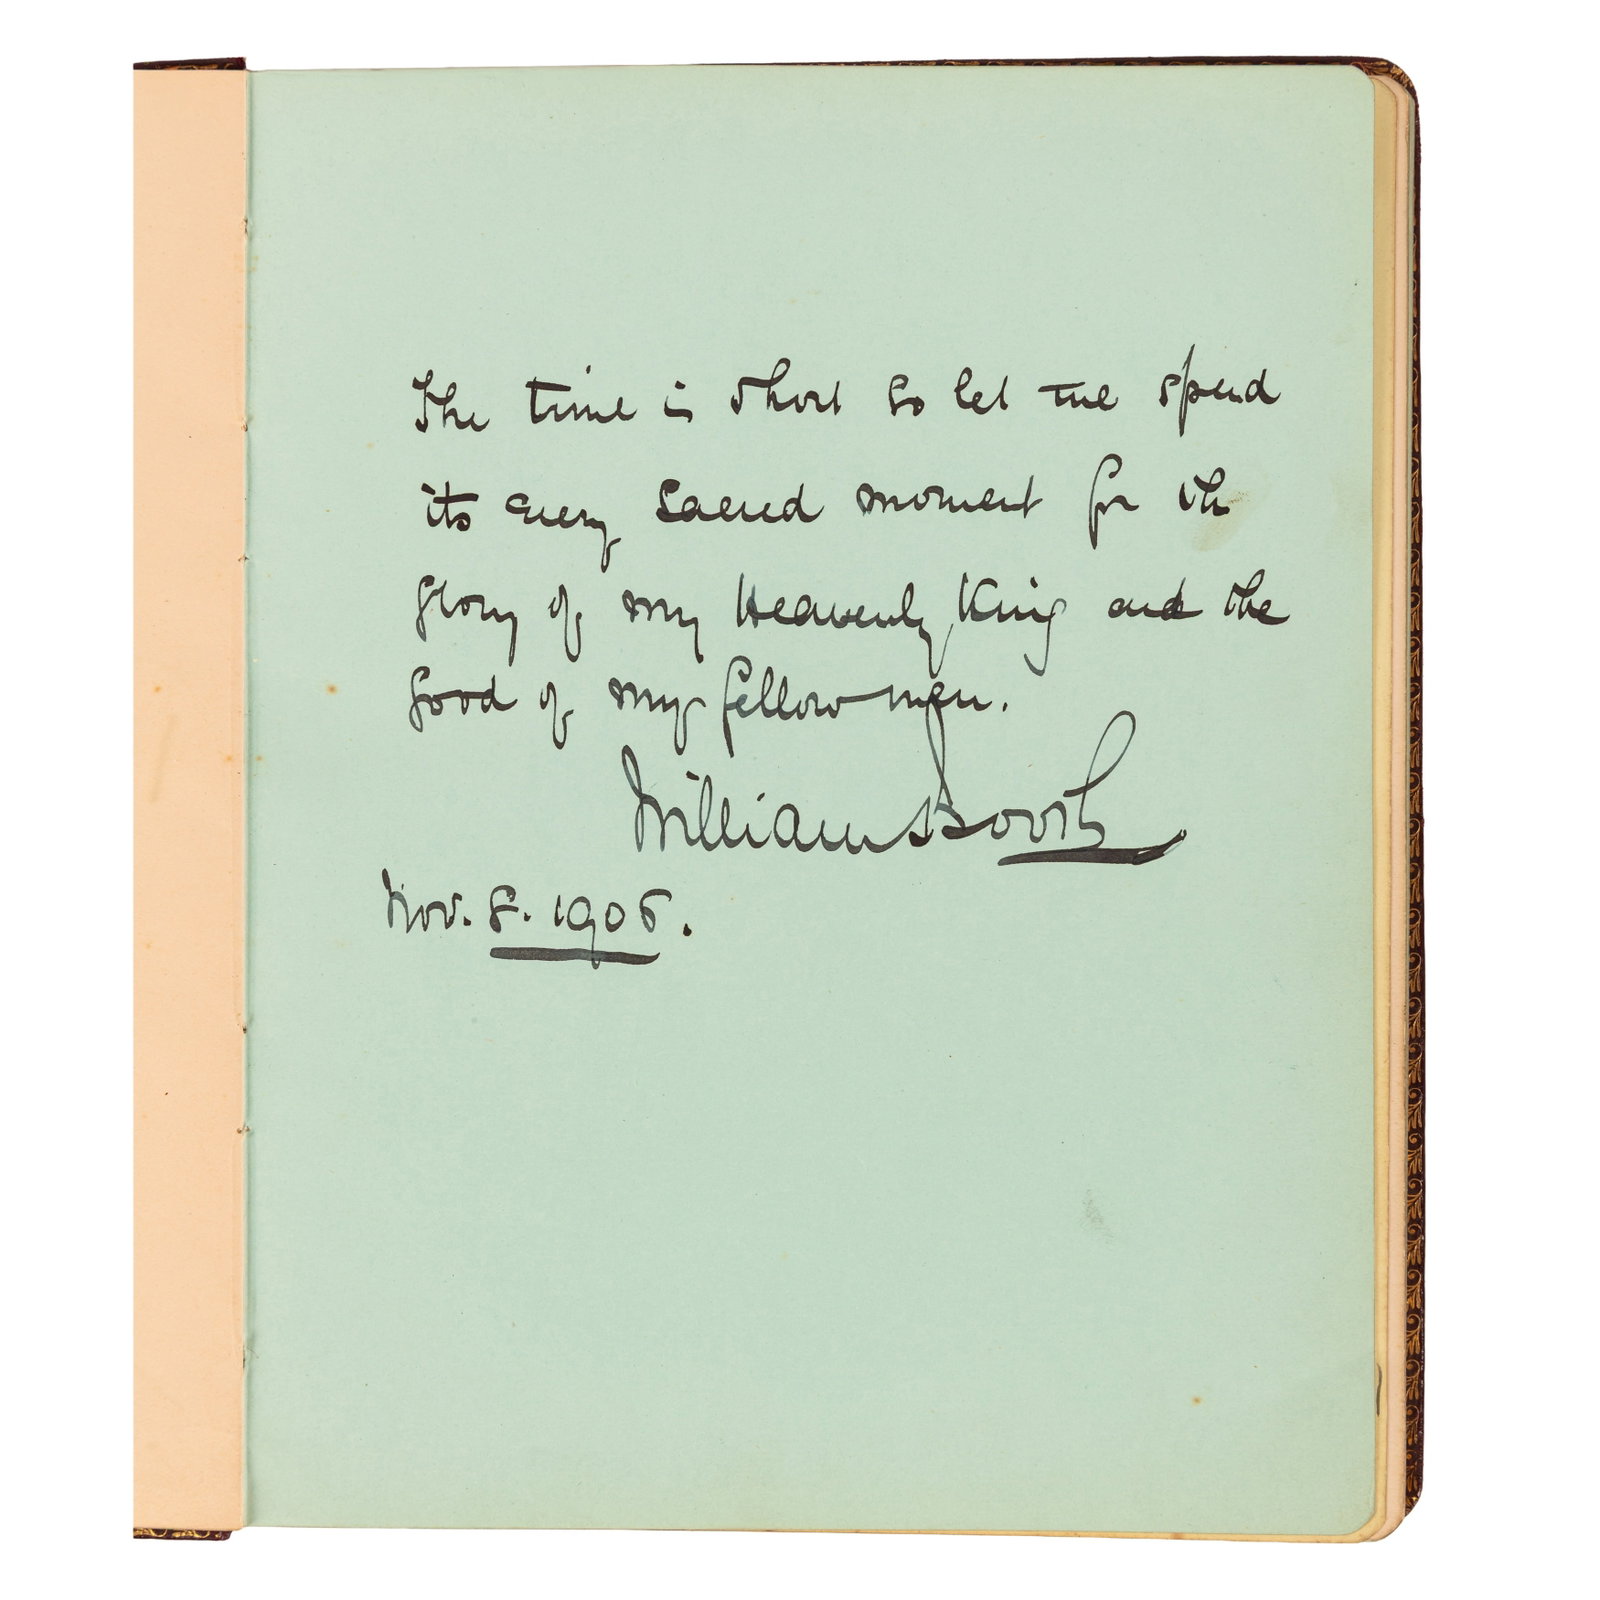 The time is short so let me spend
its every sacred moment for the
glory of my Heavenly King and the
good of my fellow men.
William Booth
Nov. 8. 1906.